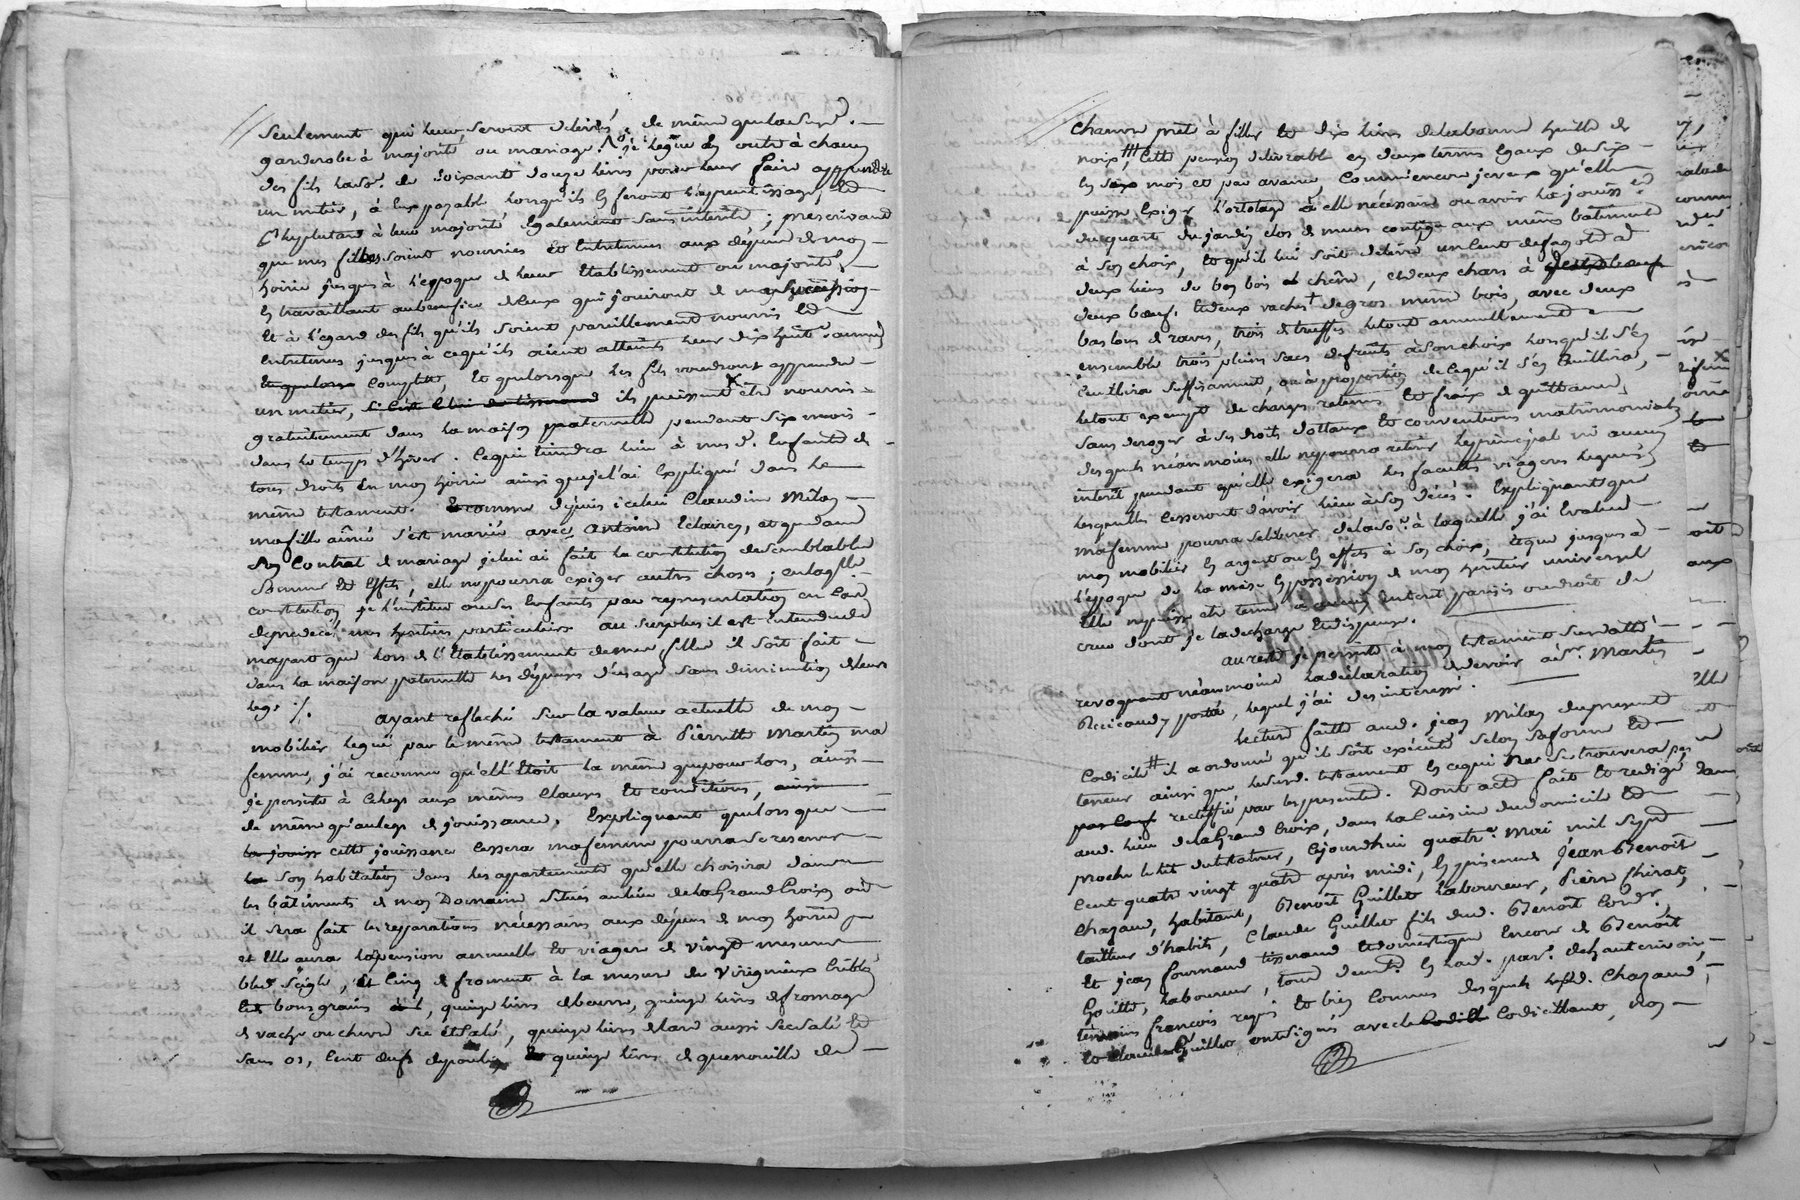 Seulement qui leur seront delivrés de même que la susd.e
garderobe à majorité ou mariage. je legue en outre à chacun
des fils lad.e de soixante douze livres pour leur faire apprendre
un metier, à eux payable lorsqu'ils en feront l'apprentissage, et
plutard à leur majorité également sans interêts; prescrivant
que mes filles soient nourries et entretenues aux dépens de mon
hoirie jusques à l'epoque de leur etablissement ou majorité,
en travaillant au benefice de ceux qui jouiront de ma succession
et à l'egard des fils qu'ils soient pareillement nourris et
entretenus jusques à ce qu'ils aient atteints leur dix huit.e année
complette, et que lorsque les fils voudront apprendre
un metier, ils puissent être nourris
gratuitement dans la maison paternelle pendant six mois
dans le temps d'hiver. ce qui tiendra lieu à mes d. enfants de
tous droits en mon hoirie ainsi que je l'ai expliqué dans le
même testament. et comme depuis icelui Claudine Milan
ma fille aînée s'est mariée avec antoine Eclaircy, et que dans
son Contrat de mariage je lui ai fait la constitution de semblables
Somme et effets, elle ne pourra exiger autres choses; en laq.lle
constitution je l'institue ou ses enfants par representation en cas
de predecés mes heritiers particuliers. au surplus il est entendu de
ma part que lors de l'etablissement de mes filles il soit fait
dans la maison paternelle les dépenses d'usage sans diminution de leurs
legs ./.
ayant reflechi sur la valeur actuelle de mon
mobilier legué par le même testament à Pierrette Martin ma
femme, j'ai reconnu qu'ell'etoit la même que pour lors, ainsi
je persiste à ce legs aux mêmes clauses et conditions,
de même qu'au legs de jouissance. Expliquant que lorsque
cette jouissance cessera ma femme pourra se reserver
son habitation dans les appartements qu'elle choisira dans
les bâtiments de mon Domaine situés au lieu de la Grand Croix où
il sera fait les reparations nécessaires aux dépens de mon hoirie
et elle aura la pension annuelle et viagere de vingt mesures
bled seigle, et cinq de froment à la mesure de Virigneux criblés
bons grains, quinze livres de beurre, quinze livres de fromage
de vache ou chevre sec et salé, quinze livres de lard aussi sec salé et
sans os, cent œufs de poule, quinze livres de quenouille de
chanvre prêt à filler et dix livres de la bonne huille de
noix, cette pension delivrable en deux termes egaux de six
en six mois et par avance, comme encore je veux qu'elle
puisse exiger l'ortolage à elle nécessaire ou avoir la jouiss.ce
du quart du jardin clos de murs contigu aux mêmes bâtiments
à son choix, et qu'il lui soit delivré un cent de fagots à
deux liens de bon bois de chêne, et deux chars à
deux bœufs et deux vaches de gros même bois, avec deux
bas lons de raves, trois de truffes le tout annuellement
ensemble trois pleins sacs de fruits à son choix lorsqu'il s'en
cueillira suffisamment, ou à proportion de ce qu'il s'en cueillira,
le tout exempt de charges retenus et frais de quittance,
sans deroger à ses droits dotaux et conventions matrimoniales
desquels néanmoins elle ne pourra retirer le principal ni aucun
interêt pendant qu'elle exigera les facultés viageres leguées
lesquelles cesseront d'avoir lieu à son décés. Expliquant que
ma femme pourra se liberer de la so.e à laquelle j'ai évalué
mon mobilier en argent ou en effets à son choix, et que jusques à
l'époque de la mise en possession de mon heritier universel
elle ne puisse être tenue à aucun interêt parisis ou droit de
crue dont je la decharge et dispense.
au reste je persiste à mon testament susdatté
revoquant néanmoins la declaration de devoir à s.r Martin
Recicaud y portée, lequel j'ai desinteressé.
Lecture faitte aud. jean Milan du present
Codicile il a ordonné qu'il soit exécuté selon sa forme et
teneur ainsi que le susd. testament en ce qui ne se trouvera pas
rectiffié par les presentes. Dont acte fait et redigé
aud. lieu de la Grand Croix, dans la cuisine du domicile et
proche le lit du testateur, ce jourdhui quatr.e mai mil sept
cent quatre vingt quatre après midi, en presence de jean Benoît
Chazaud, habitant, Benoît Guillet laboureur, Pierre Thirat,
tailleur d'habits, Claude Guillet fils dud. Benoît cord.r,
et jean fournand tisserand et domestique encore de Benoît
Goutte, laboureur, tous demt. en lad. par. de hauterivoire,
témoins françois requis et bien connus desquels lesd. Chazaud,
et Claude Guillet ont signés avec le codicillant, non